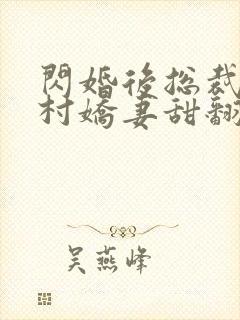 閃婚後总裁
村嬌妻甜翻
吴燕峰